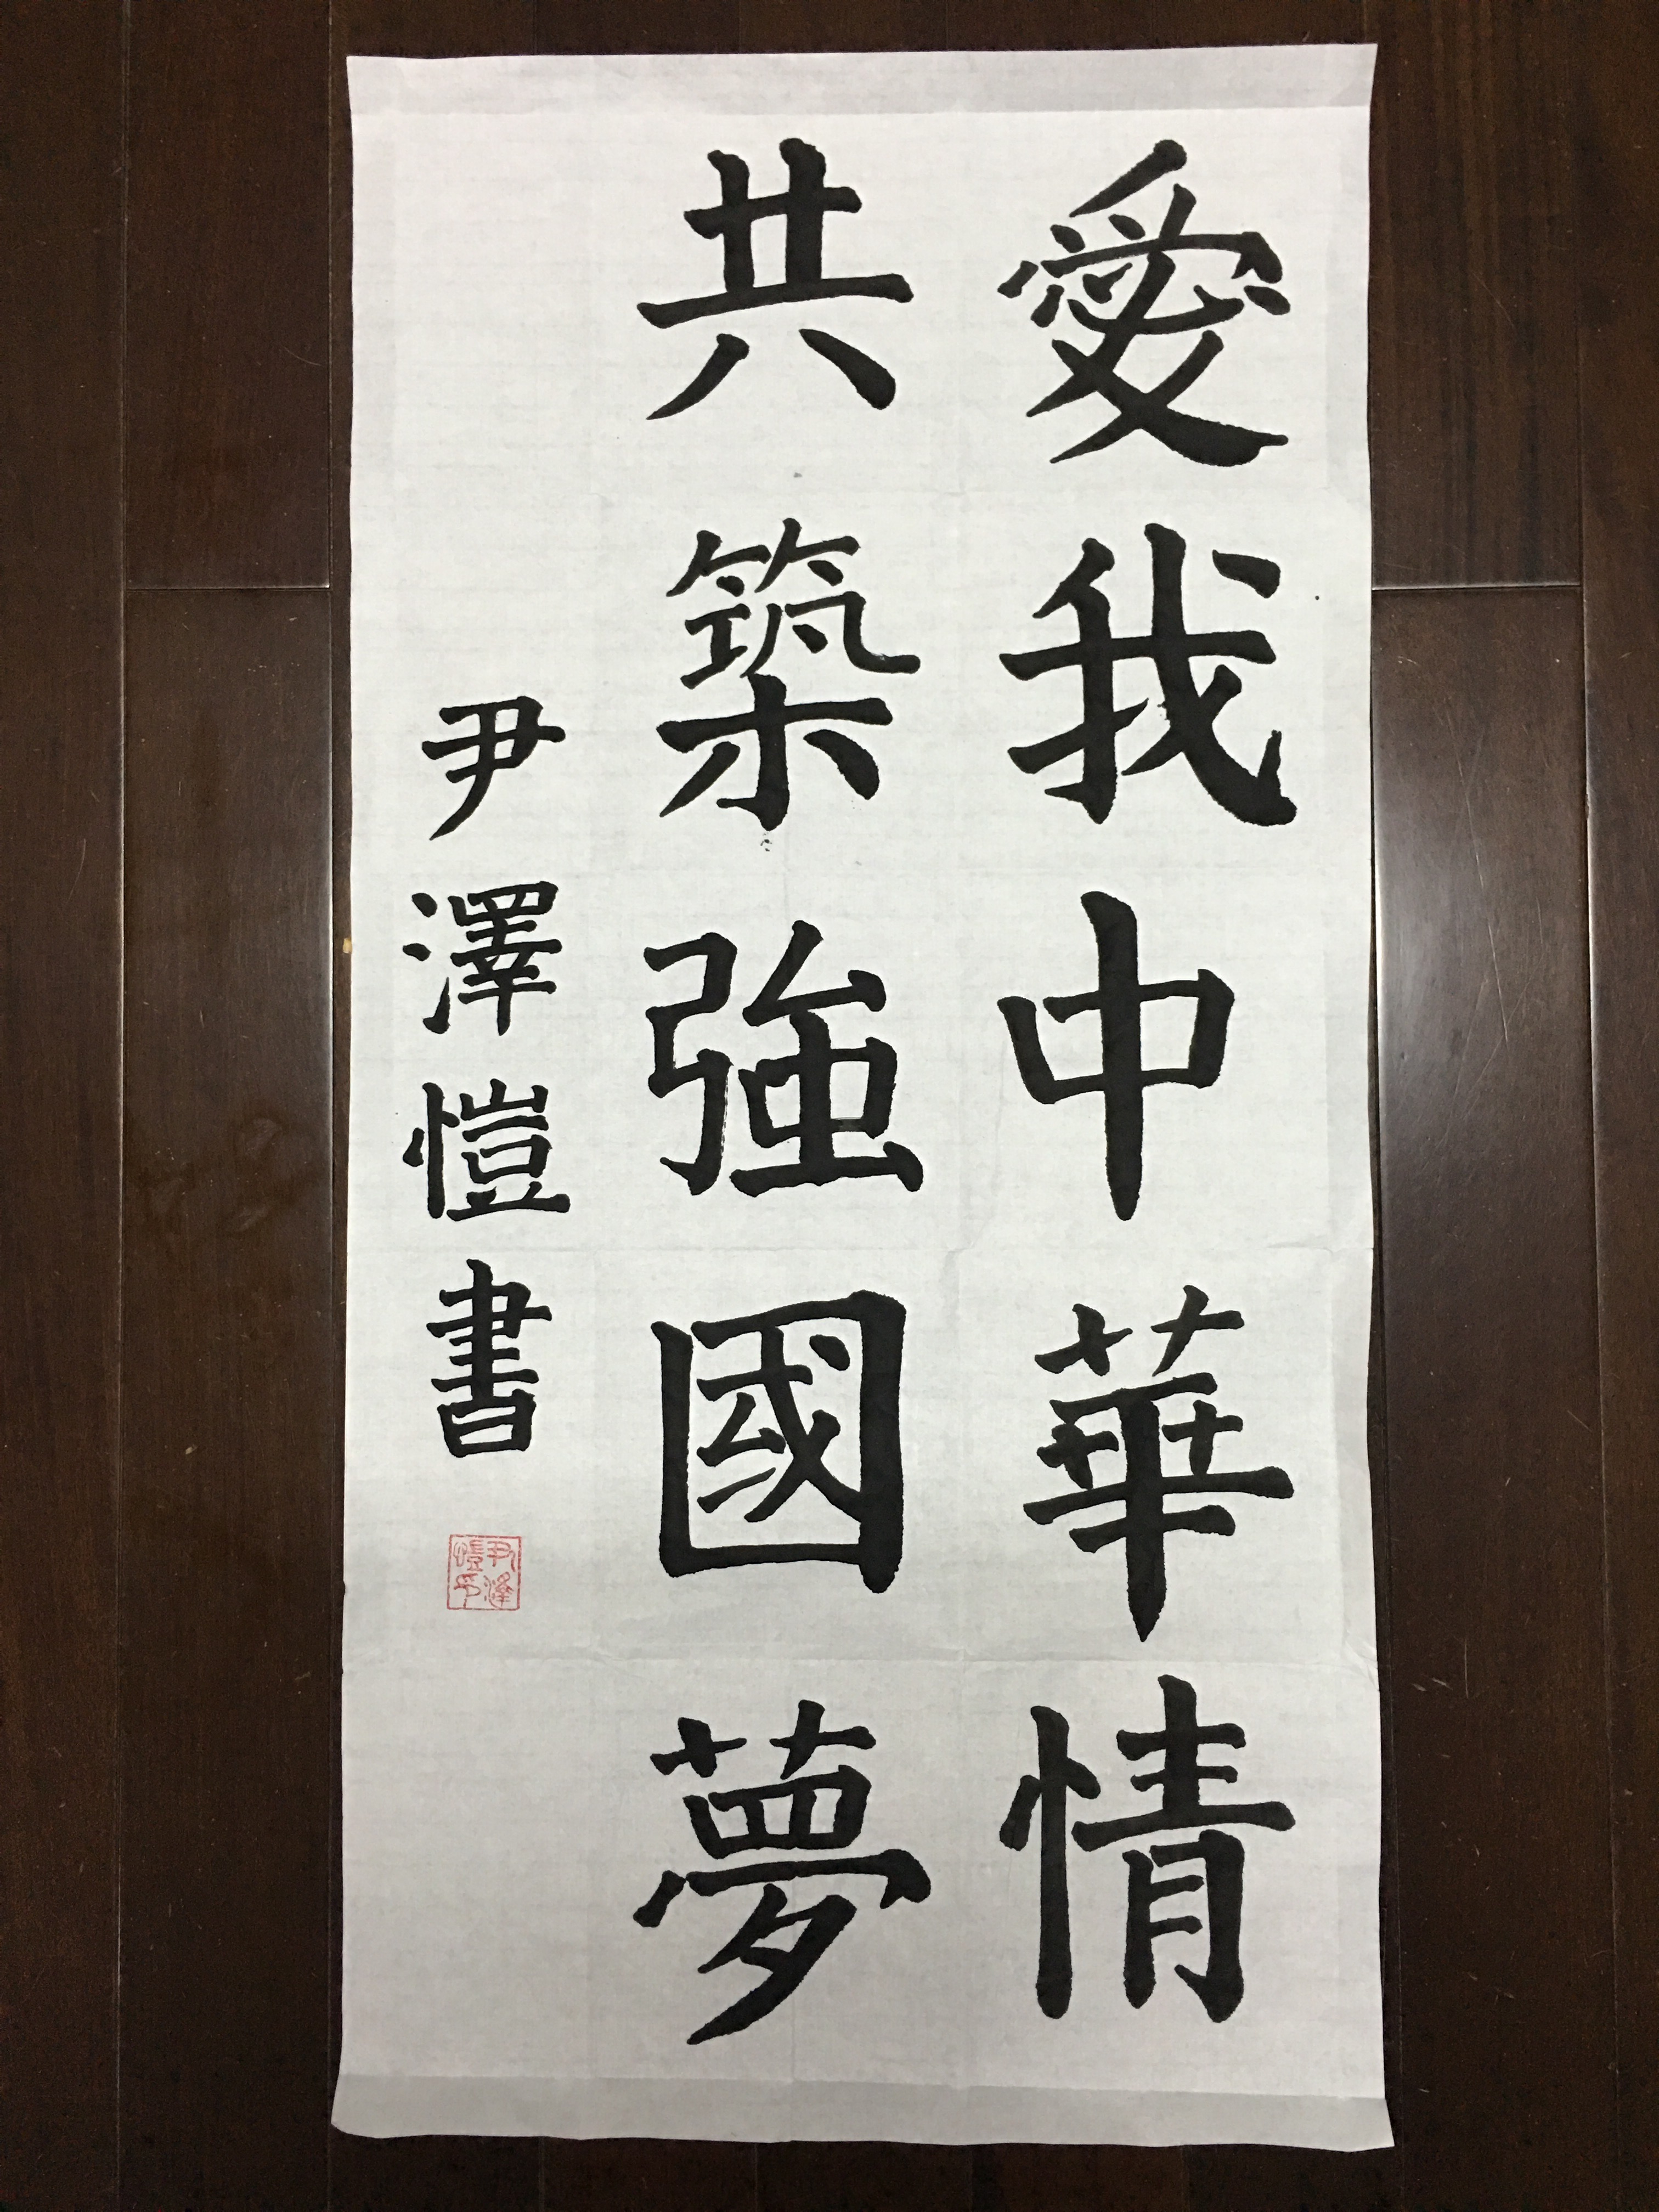 愛我中華情
共築強國夢
尹澤愷書
尹澤
愷印